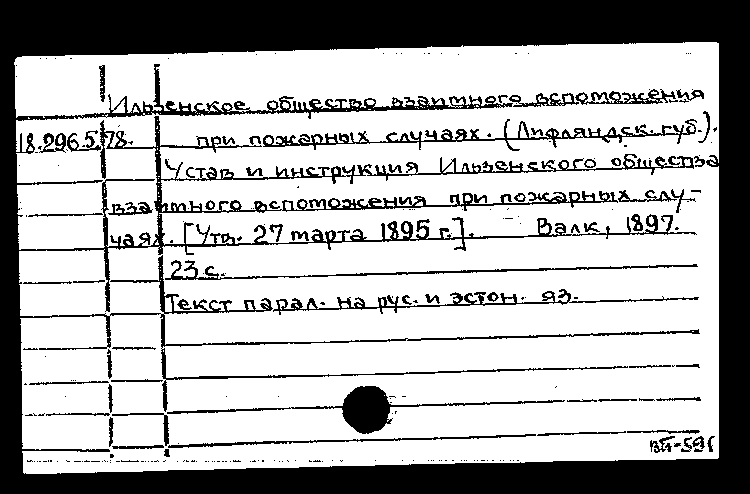 Ильзенское общество взаимного вспоможения
18.296.5.78. при пожарных случаях. (Лифляндск. губ.).
Устав и инструкция Ильзенского общества
взаимного вспоможения при пожарных слу-
чаях. [Утв. 27 марта 1895 г.]. Валк, 1897.
23 с.
Текст парал. на рус. и эстон. яз.